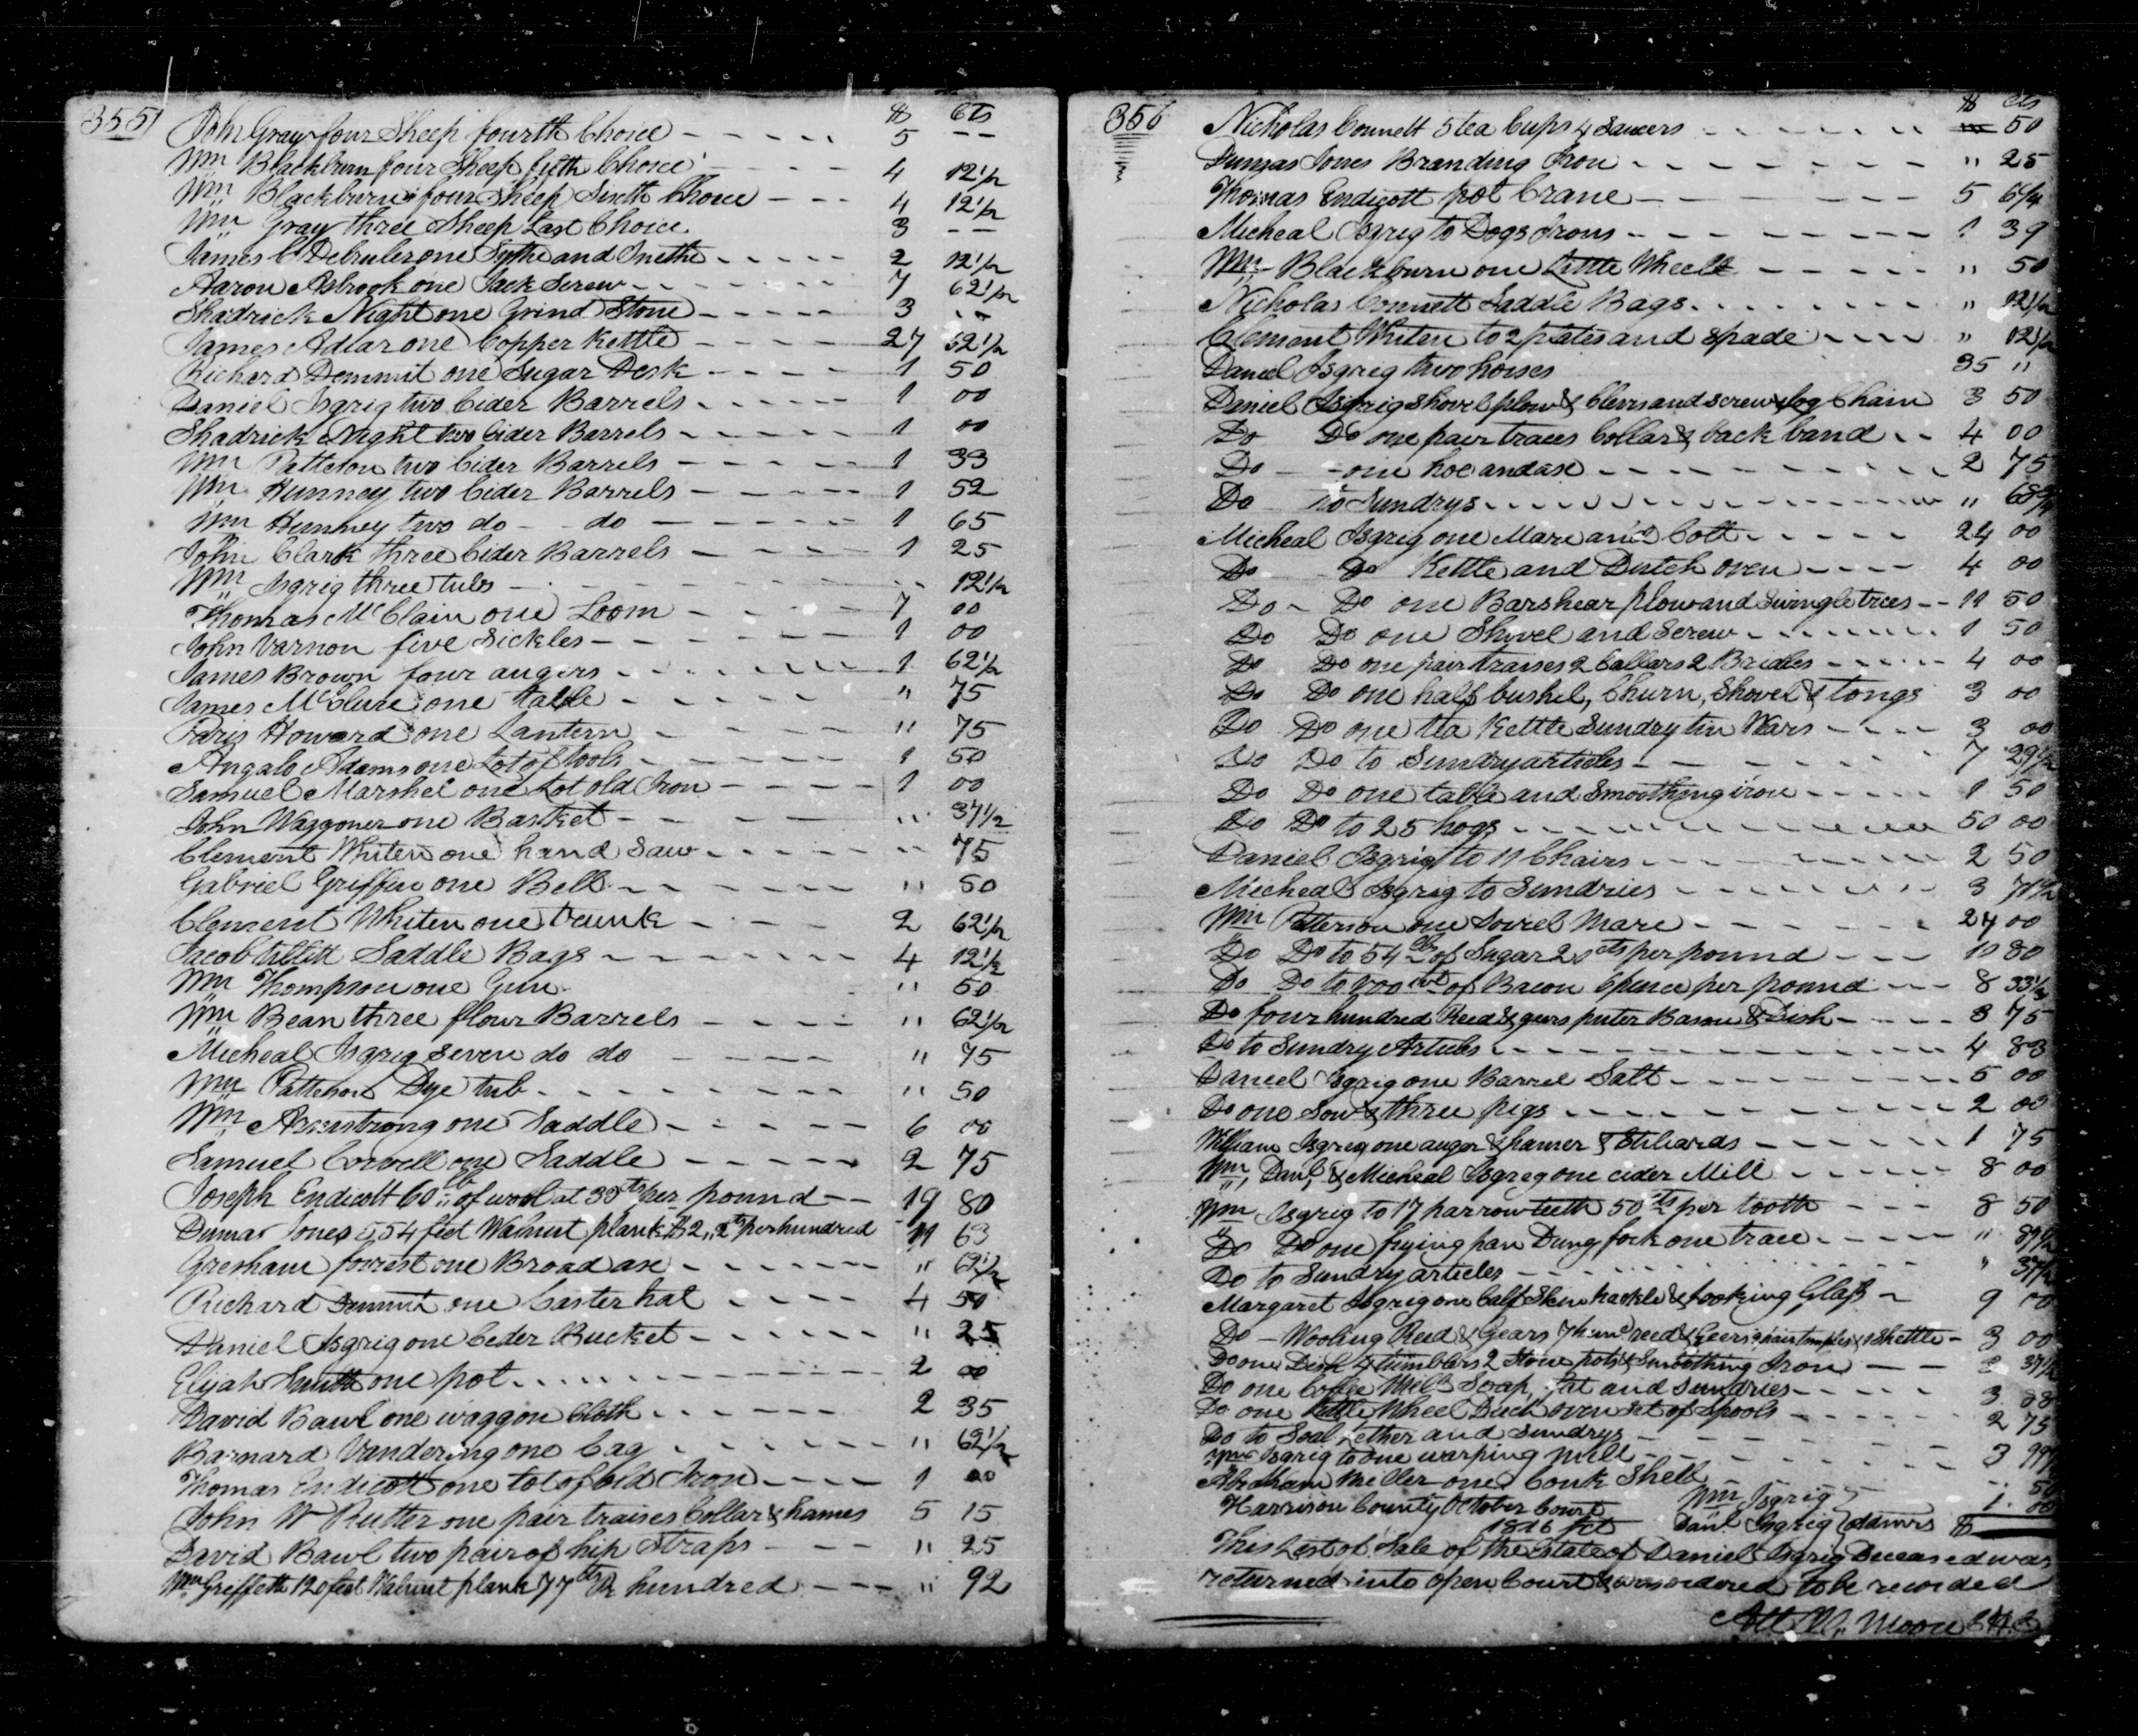 355
$ Cts
John Gray four Sheep fourth Choice - - - - - 5 - -
Wm Blackburn four Sheep fifth Choice - - - - 4 12 1/2
Wm Blackburn four Sheep Sixth Choice - - - 4 12 1/2
Wm Gray three Sheep Last Choice 3 - -
James C Debruler one Sythe and Snethe - - - - - 2 12 1/2
Aaron Asbrook one Jack Screw - - - - - - 7 62 1/2
Shadrick Night one Grind Stone - - - - - 3 - -
James Adear one Copper Kettle - - - - - 27 52 1/2
Richard Demmit one Sugar Desk - - - - - 1 50
Daniel Isgrig two Cider Barrels - - - - - 1 00
Shadrick Night two Cider Barrels - - - - - 1 00
Wm Patteson two Cider Barrels - - - - - 1 33
Wm Humney two Cider Barrels - - - - - 1 52
Wm Humney two do - - do - - - - - 1 65
John Clark three Cider Barrels - - - - - 1 25
Wm Isgrig three tubs - - - - - - - - - 12 1/2
Thomas McClain one Loom - - - - - 7 00
John Varnon five Sickles - - - - - - 1 00
James Brown four augers - - - - - - 1 62 1/2
James McClure one table - - - - - " 75
Paris Howard one Lantern - - - - - " 75
Angalo Adams one Lot of tools - - - - - 1 50
Samuel Marshel one Lot old Iron - - - - - 1 00
John Waggoner one Basket - - - - - " 37 1/2
Clement Whiten one hand Saw - - - - - " 75
Gabriel Griffin one Bell - - - - - - " 50
Clement Whiten one trunk - - - - 2 62 1/2
Jacob tillett Saddle Bags - - - - - - - 4 12 1/2
Wm Thompson one Gun " 50
Wm Bean three flour Barrels - - - - - " 62 1/2
Micheal Isgrig Seven do do - - - - - " 75
Wm Patteson Dye tub - - - - - - - - " 50
Wm Armstrong one Saddle - - - - - - 6 00
Samuel Corvell one Saddle - - - - - 2 75
Joseph Endicott 60 lb of wool at 33 cts per pound - - 19 80
Dumas Jones 554 feet Walnut plank $2,,2 cts per hundred 11 63
Gresham forrest one Broad axe - - - - - - - " 62 1/2
Richard Demmit one Caster hat - - - - 4 50
Daniel Isgrig one Ceder Bucket - - - - - - " 25
Elijah Smith one pot - - - - - - - - - - 2 00
David Bawl one waggon Cloth - - - - - - 2 35
Barnard Vandering one bag - - - - - - " 62 1/2
Thomas Endicott one lot of old Iron - - - - 1 00
John W Rutter one pair traises Collar & hames 5 15
David Bawl two pair of hip Straps - - - - " 25
Wm Griffeth 120 feet Walnut plank 77 cts Pr hundred - - - " 92
356
$ cts
Nicholas Connett 5 tea Cups 4 Saucers - - - - - - - 50
Dumas Jones Branding Iron - - - - - - - " 25
Thomas Endicott pot Crane - - - - - - - 5 6 1/4
Micheal Isgrig to Dogs Irons - - - - - - - - 1 39
Wm Blackburn one Little Wheele - - - - - " 50
Nicholas Connett Saddle Bags - - - - - - - " 12 1/2
Clement Whiten to 2 plates and Spade - - - - " 12 1/2
Daniel Isgrig two horses 35 "
Daniel Isgrig Shovel plow & Clevis and screw log Chain 3 50
Do Do one pair traces Collar & back band - - 4 00
Do - - one hoe and axe - - - - - - - - - 2 75
Do to Sundrys - - - - - - - - - - - - - " 68 3/4
Micheal Isgrig one Mare and Colt - - - - - 24 00
Do Do Kettle and Dutch oven - - - - 4 00
Do - Do one Barshear plow and Swingle trees - - 11 50
Do Do one Shovel and Screw - - - - - - - 1 50
Do Do one pair traises 2 Collars 2 Bridles - - - - - - 4 00
Do Do one half bushel, Churn, Shovel & tongs 3 00
Do Do one tea Kettle Sundry tin Wars - - - - 3 00
Do Do to Sundry articles - - - - - - 7 29 1/2
Do Do one table and Smoothing iron - - - - - 1 50
Do Do to 25 hogs - - - - - - - - - - - - 50 00
Daniel Isgrig to 11 Chairs - - - - - - - - 2 50
Micheal Isgrig to Sundries - - - - - - - - 3 71 1/2
Wm Patterson one Sorrel Mare - - - - - - 24 00
Do Do to 54 lb of Sugar 20 cts per pound - - - 10 80
Do Do to of Bacon 6 pence per pound - - - 8 33 1/3
Do four hundred Reed & gears puter Bason & Dish - - - - 3 75
Do to Sundry Articles - - - - - - - - - - - 4 83
Daniel Isgrig one Barrel Salt - - - - - - - - - 5 00
Do one Sow & three pigs - - - - - - - - - - - 2 00
William Isgrig one auger & hamer & Stiliards - - - - - - 1 75
Wm, Danl, & Micheal Isgrig one cider Mill - - - - - 8 00
Wm Isgrig to 17 harrow teeth 50 cts per tooth - - - 8 50
Do Do one frying pan Dung fork one trace - - - - - " 89 1/2
Do to Sundry articles - - - - - - - - - - " 37 1/2
Margaret Isgrig one Calf Skin hackle & looking Glass - 9 00
Do - Wooling Reed & Gears 7 hund reed & Geers 2 pair temples & Shettle - 3 00
Do one Dish 4 tumblers 2 Stone pots & Smoothing Iron - - 37 1/2
Do one Coffee Mill Soap, fat and Sundries - - - - - 3 88
Do one little Wheel Duch oven set of Spools - - - - - 2 75
Do to Soal Lether and Sundrys - - - - - - 3
Wm Isgrig to one warping Mill - - - - - - - 50
Abraham Miller one Conk Shell 1. 00
Wm Isgrig }
Harrison County October Court Danl Isgrig } admrs $
1816 Sct
This List of Sale of the Estate of Daniel Isgrig Deceased was
returned into open Court & was ordered to be recorded
Att W. Moore C H C